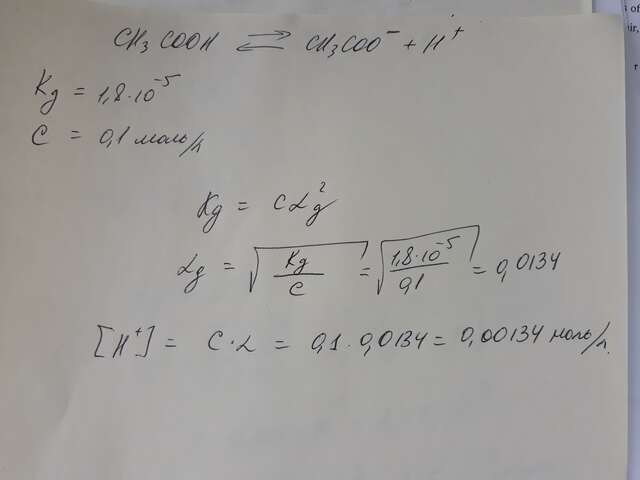 CH₃COOH ⇌ CH₃COO⁻ + H⁺
Kg = 1,8·10⁻⁵
C = 0,1 моль/л
Kg = Cαg²
αg = √(Kg/C) = √(1,8·10⁻⁵/0,1) = 0,0134
[H⁺] = C·α = 0,1·0,0134 = 0,00134 моль/л.
s of